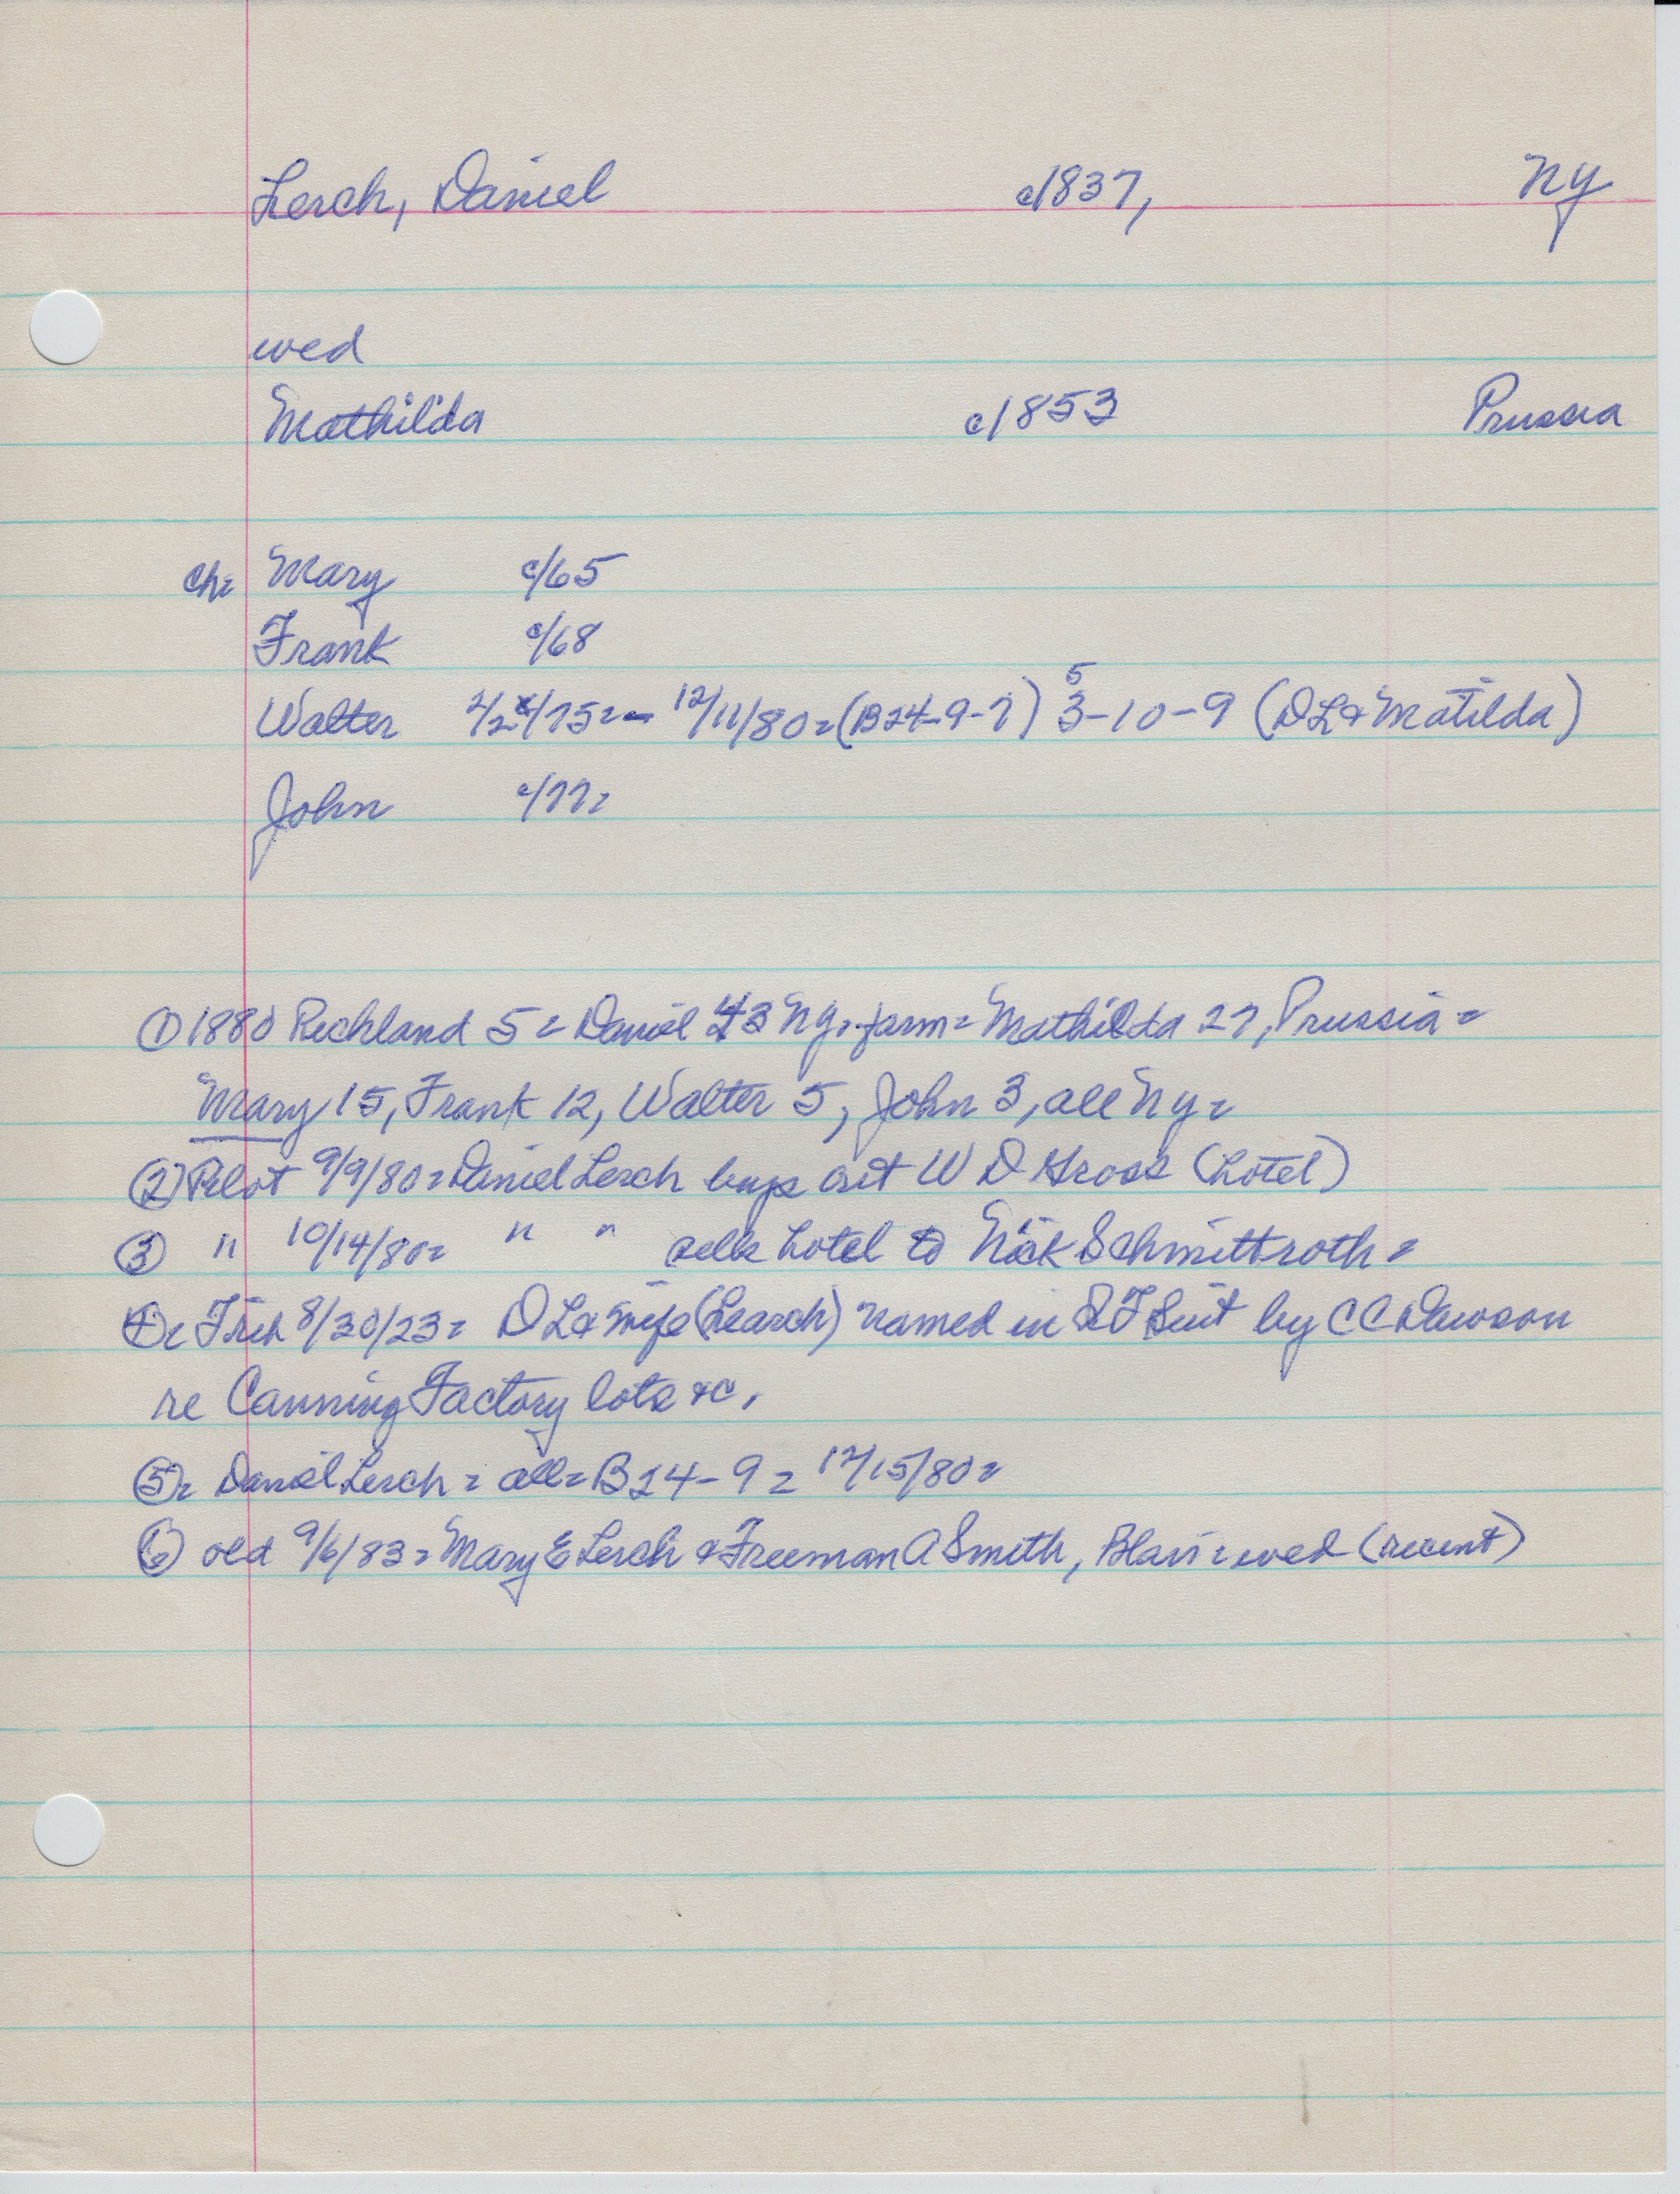 Lerch, Daniel c/1837, NY
wed
Mathilda c/1853 Prussia
ch= Mary c/65
Frank c/68
Walter 2/2/75=- 12/11/80=(B24-9-7) 5 3-10-9 (DL & Matilda)
John c/77=
① 1880 Richland 5= Daniel 43 NY. farm= Mathilda 27, Prussia=
Mary 15, Frank 12, Walter 5, John 3, all NY=
② Pilot 9/9/80= Daniel Lerch buys out W D Gross (hotel)
③ " 10/14/80= " " sells hotel to Nick Schmittroth=
④= Trib 8/30/23= DL & wife (Learch) named in QT Suit by CC Dawson
re Canning Factory lots &c.
⑤= Daniel Lerch= all= B24-9= 12/15/80=
⑥ old 9/6/83= Mary E Lerch & Freeman A Smith, Blair= wed (recent)